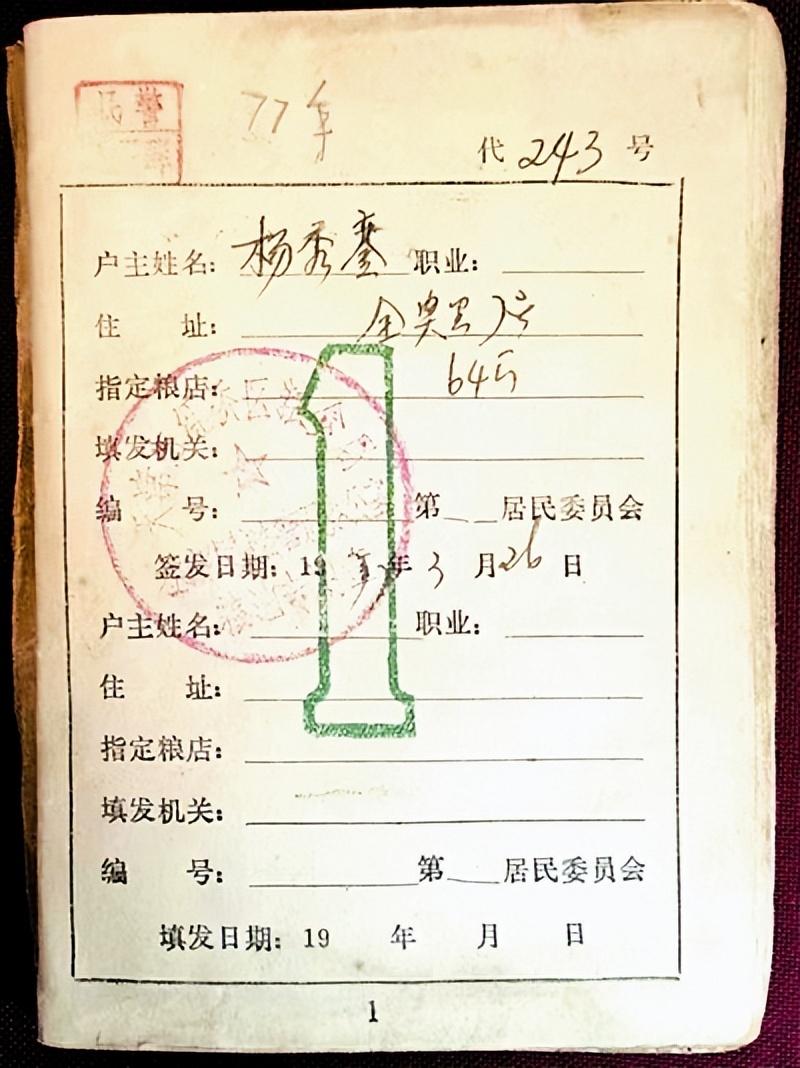 民警
77年
代 243 号
户主姓名: 杨秀銮 职业:
住 址: 全 里 1号
指定粮店: 64
填发机关:
编 号: 第 居民委员会
签发日期: 19 年 3 月 26 日
户主姓名: 职业:
住 址:
指定粮店:
填发机关:
编 号: 第 居民委员会
填发日期: 19 年 月 日
1
1